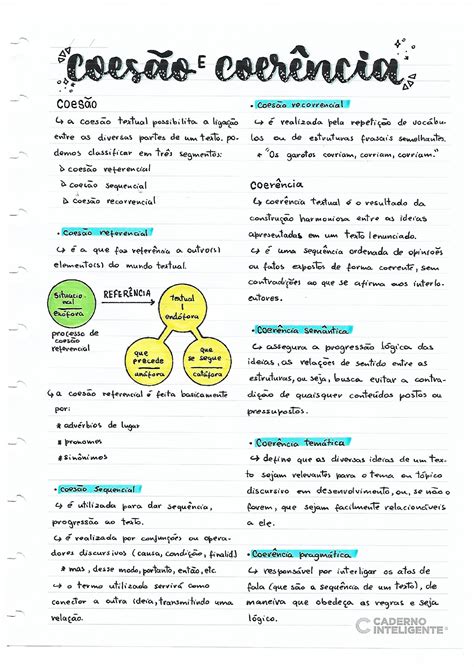 coesão E coerência
coesão
↳ a coesão textual possibilita a ligação
entre as diversas partes de um texto. po
demos classificar em três segmentos:
▷ coesão referencial
▷ coesão sequencial
▷ coesão recorrencial
• coesão referencial
↳ é a que faz referência a outro(s)
elemento(s) do mundo textual.
situacio-
nal
exófora
REFERÊNCIA
textual
endófora
processo de
coesão
referencial
que
precede
anáfora
que
se segue
catáfora
↳ a coesão referencial é feita basicamente
por:
* advérbios de lugar
* pronomes
* sinônimos
• coesão sequencial
↳ é utilizada para dar sequência,
progressão ao texto.
↳ é realizada por conjunções ou opera-
dores discursivos (causa, condição, finalid)
* mas, desse modo, portanto, então, etc
↳ o termo utilizado servirá como
conector a outra ideia, transmitindo uma
relação.
• coesão recorrencial
↳ é realizada pela repetição de vocábu-
los ou de estruturas frasais semelhantes.
* "Os garotos corriam, corriam, corriam."
coerência
↳ coerência textual é o resultado da
construção harmoniosa entre as ideias
apresentadas em um texto/enunciado.
↳ é uma sequência ordenada de opiniões
ou fatos expostos de forma coerente, sem
contradições ao que se afirma aos interlo-
cutores.
• Coerência semântica
↳ assegura a progressão lógica das
ideias, as relações de sentido entre as
estruturas, ou seja, busca evitar a contra-
dição de quaisquer conteúdos postos ou
pressupostos.
• Coerência temática
↳ define que as diversas ideias de um tex-
to sejam relevantes para o tema ou tópico
discursivo em desenvolvimento, ou, se não o
forem, que sejam facilmente relacionáveis
a ele.
• Coerência pragmática
↳ responsável por interligar os atos de
fala (que são a sequência de um texto), de
maneira que obedeça as regras e seja
lógico.
CADERNO
INTELIGENTE®